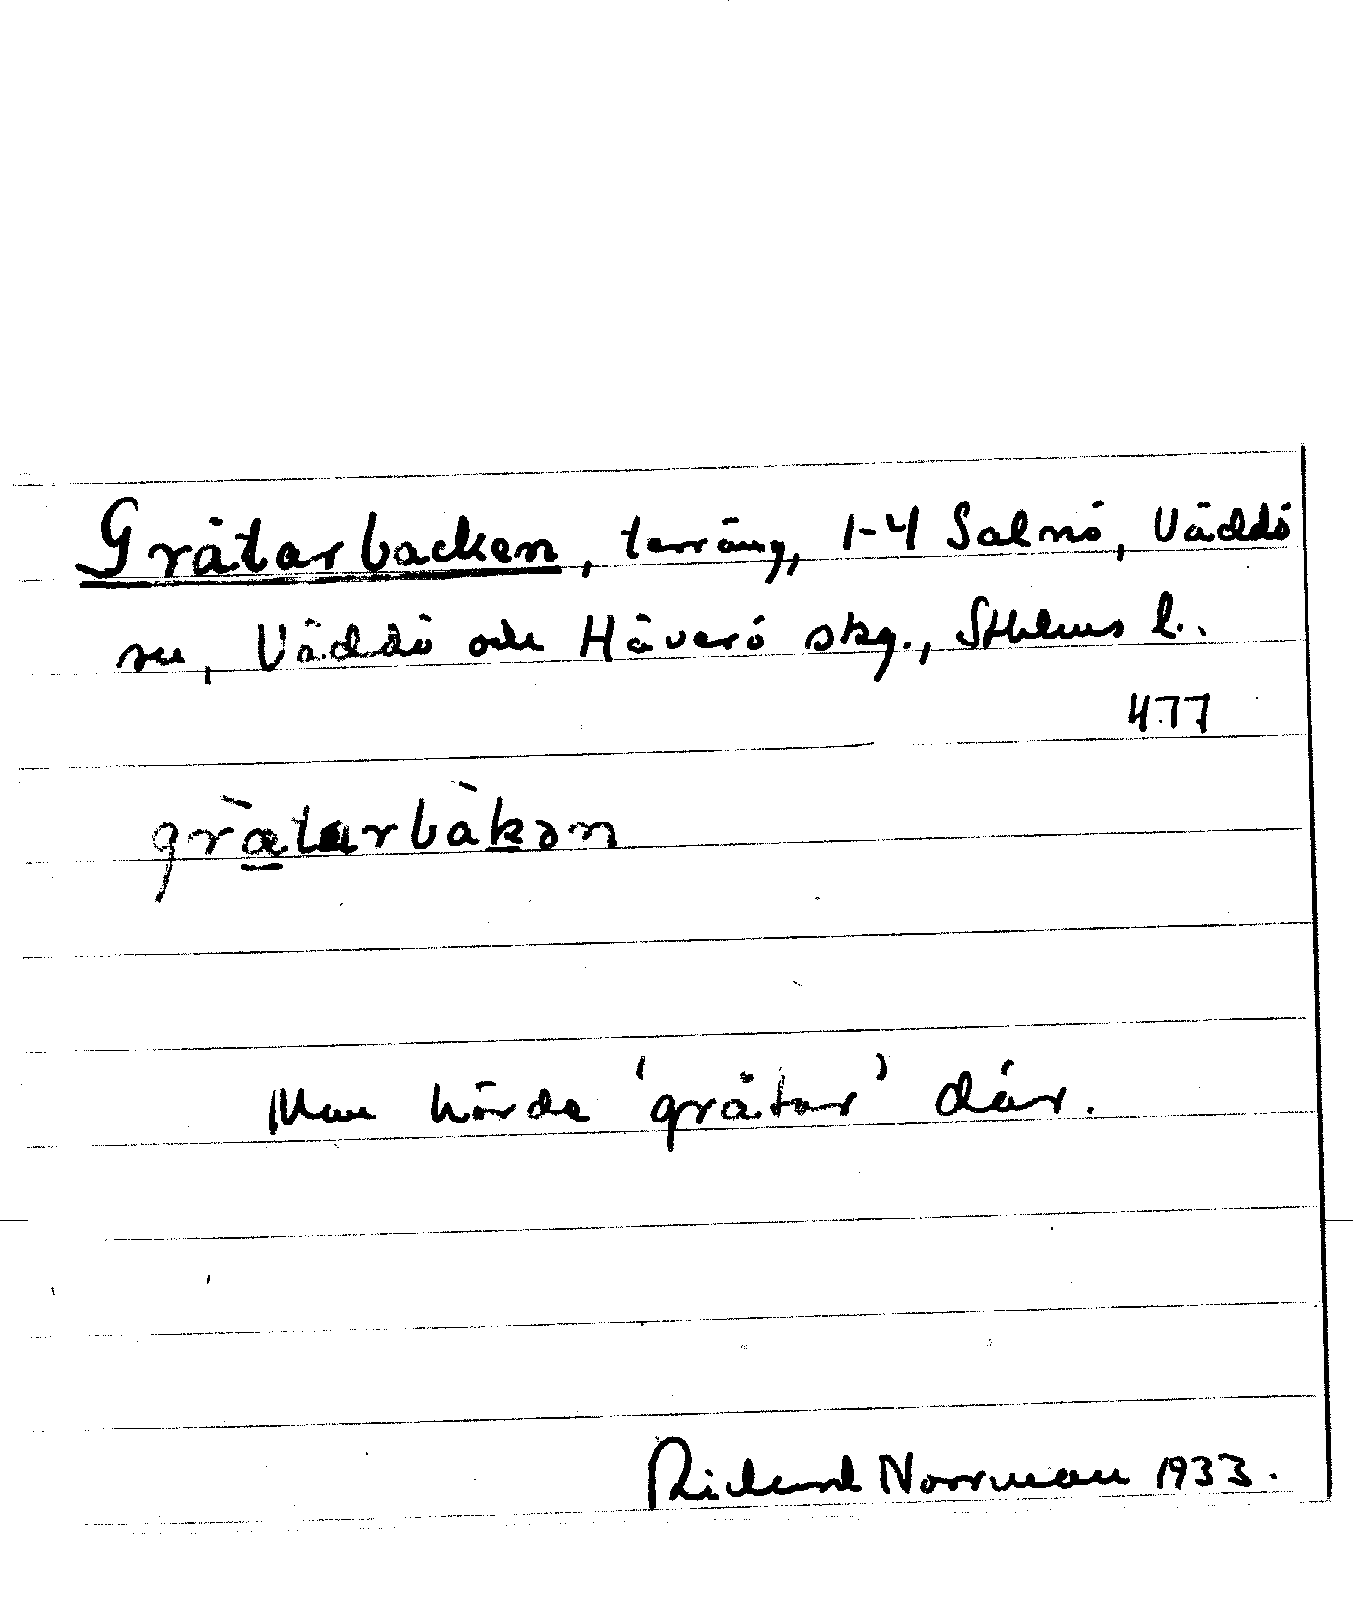 Gråtarbacken, terräng, 1-4 Salnö, Väddö
sn, Väddö och Häverö skg., Sthlms l.
477
gràtarbàkən
Man hörde 'gråtar' där.
Rickard Norrman 1933.